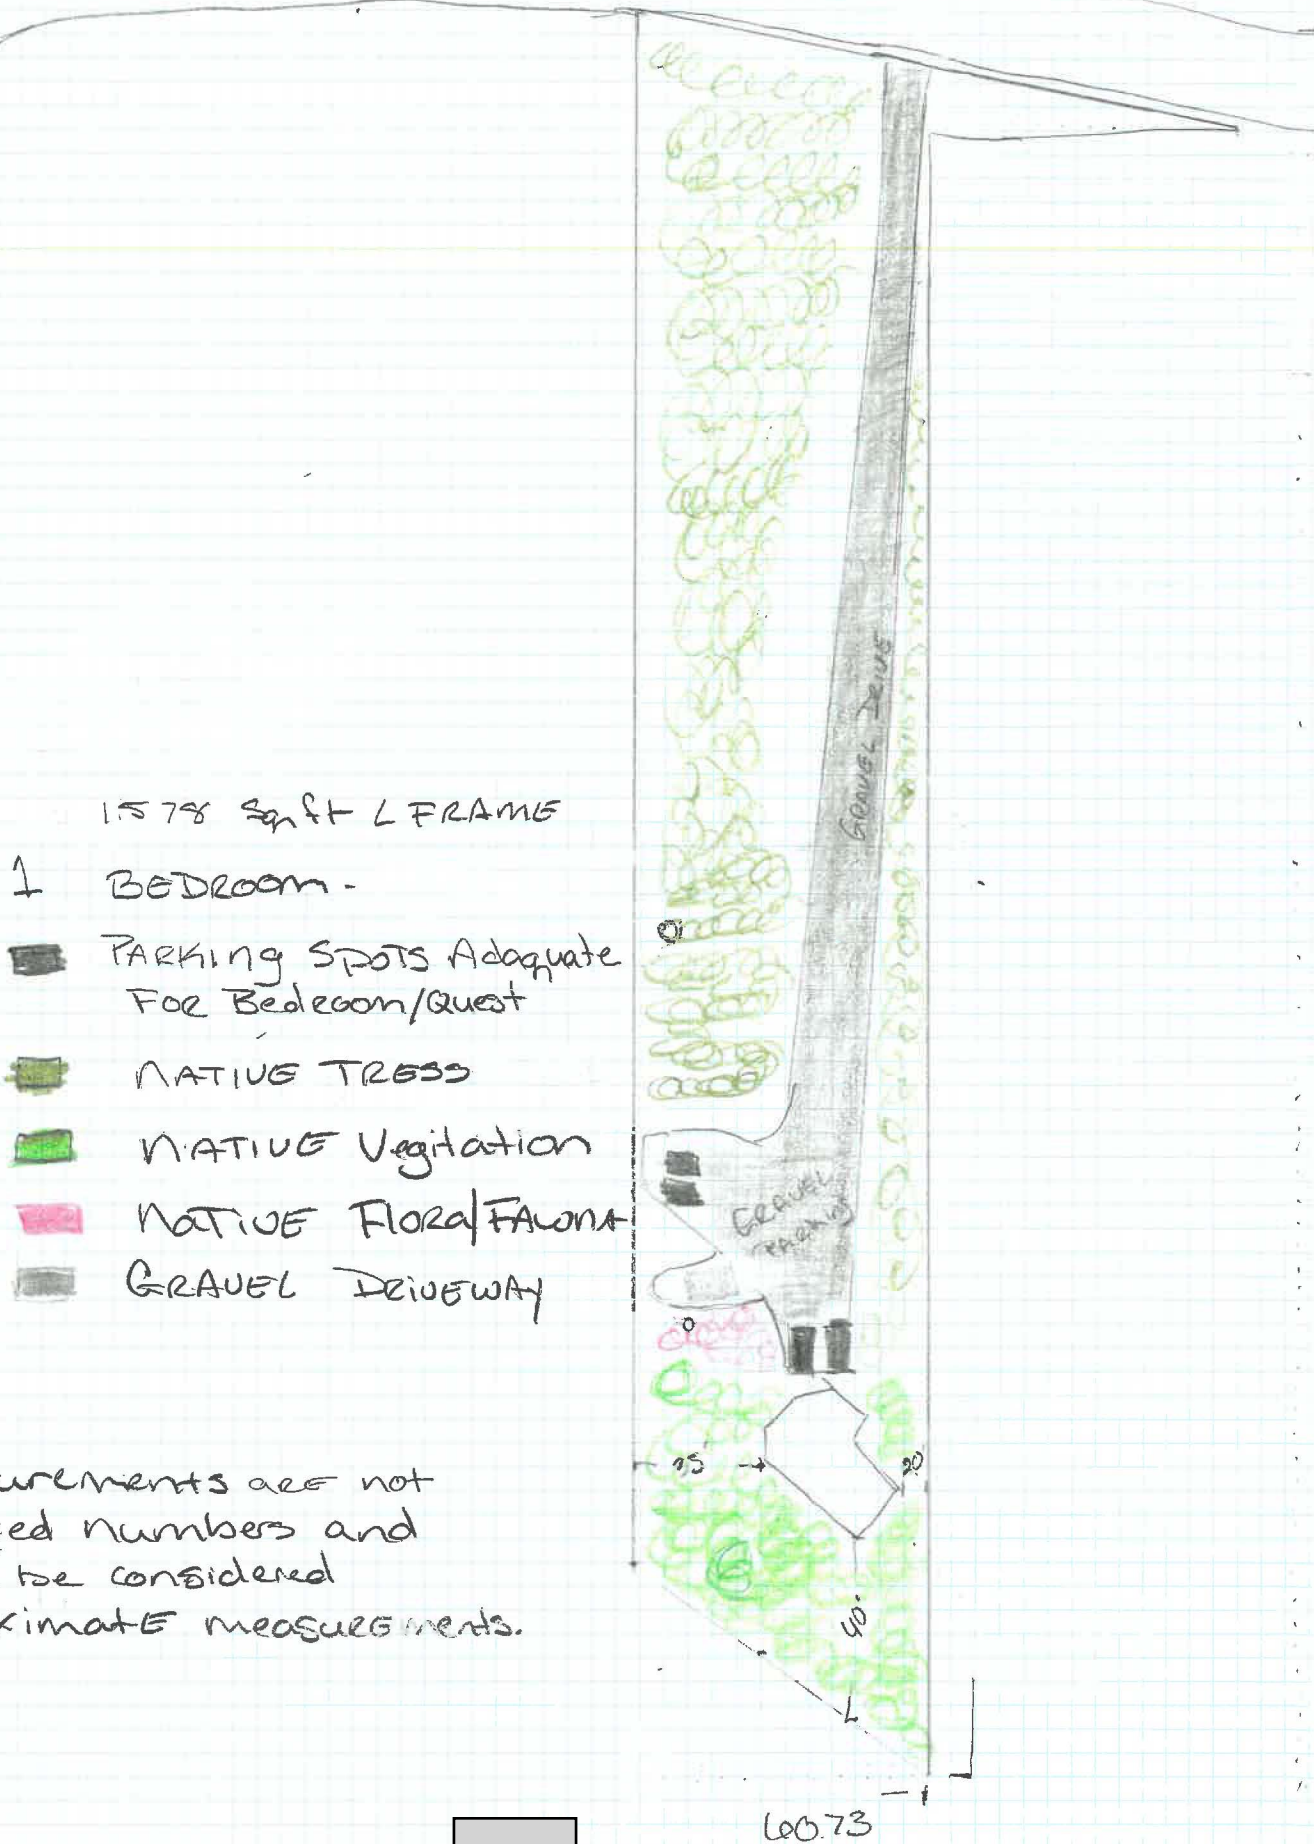 1578 Sqft L FRAME
1 BEDROOM -
PARKING SPOTS Adaquate
FOR Bedroom/Quest
NATIVE TRESS
NATIVE Vegitation
NATIVE Flora/FAUONA
GRAVEL DRIVEWAY
urements are not
ed numbers and
be considered
ximate measurements.
GRAVEL DRIVE
GRAVEL
PARKING
20
40'
60.73